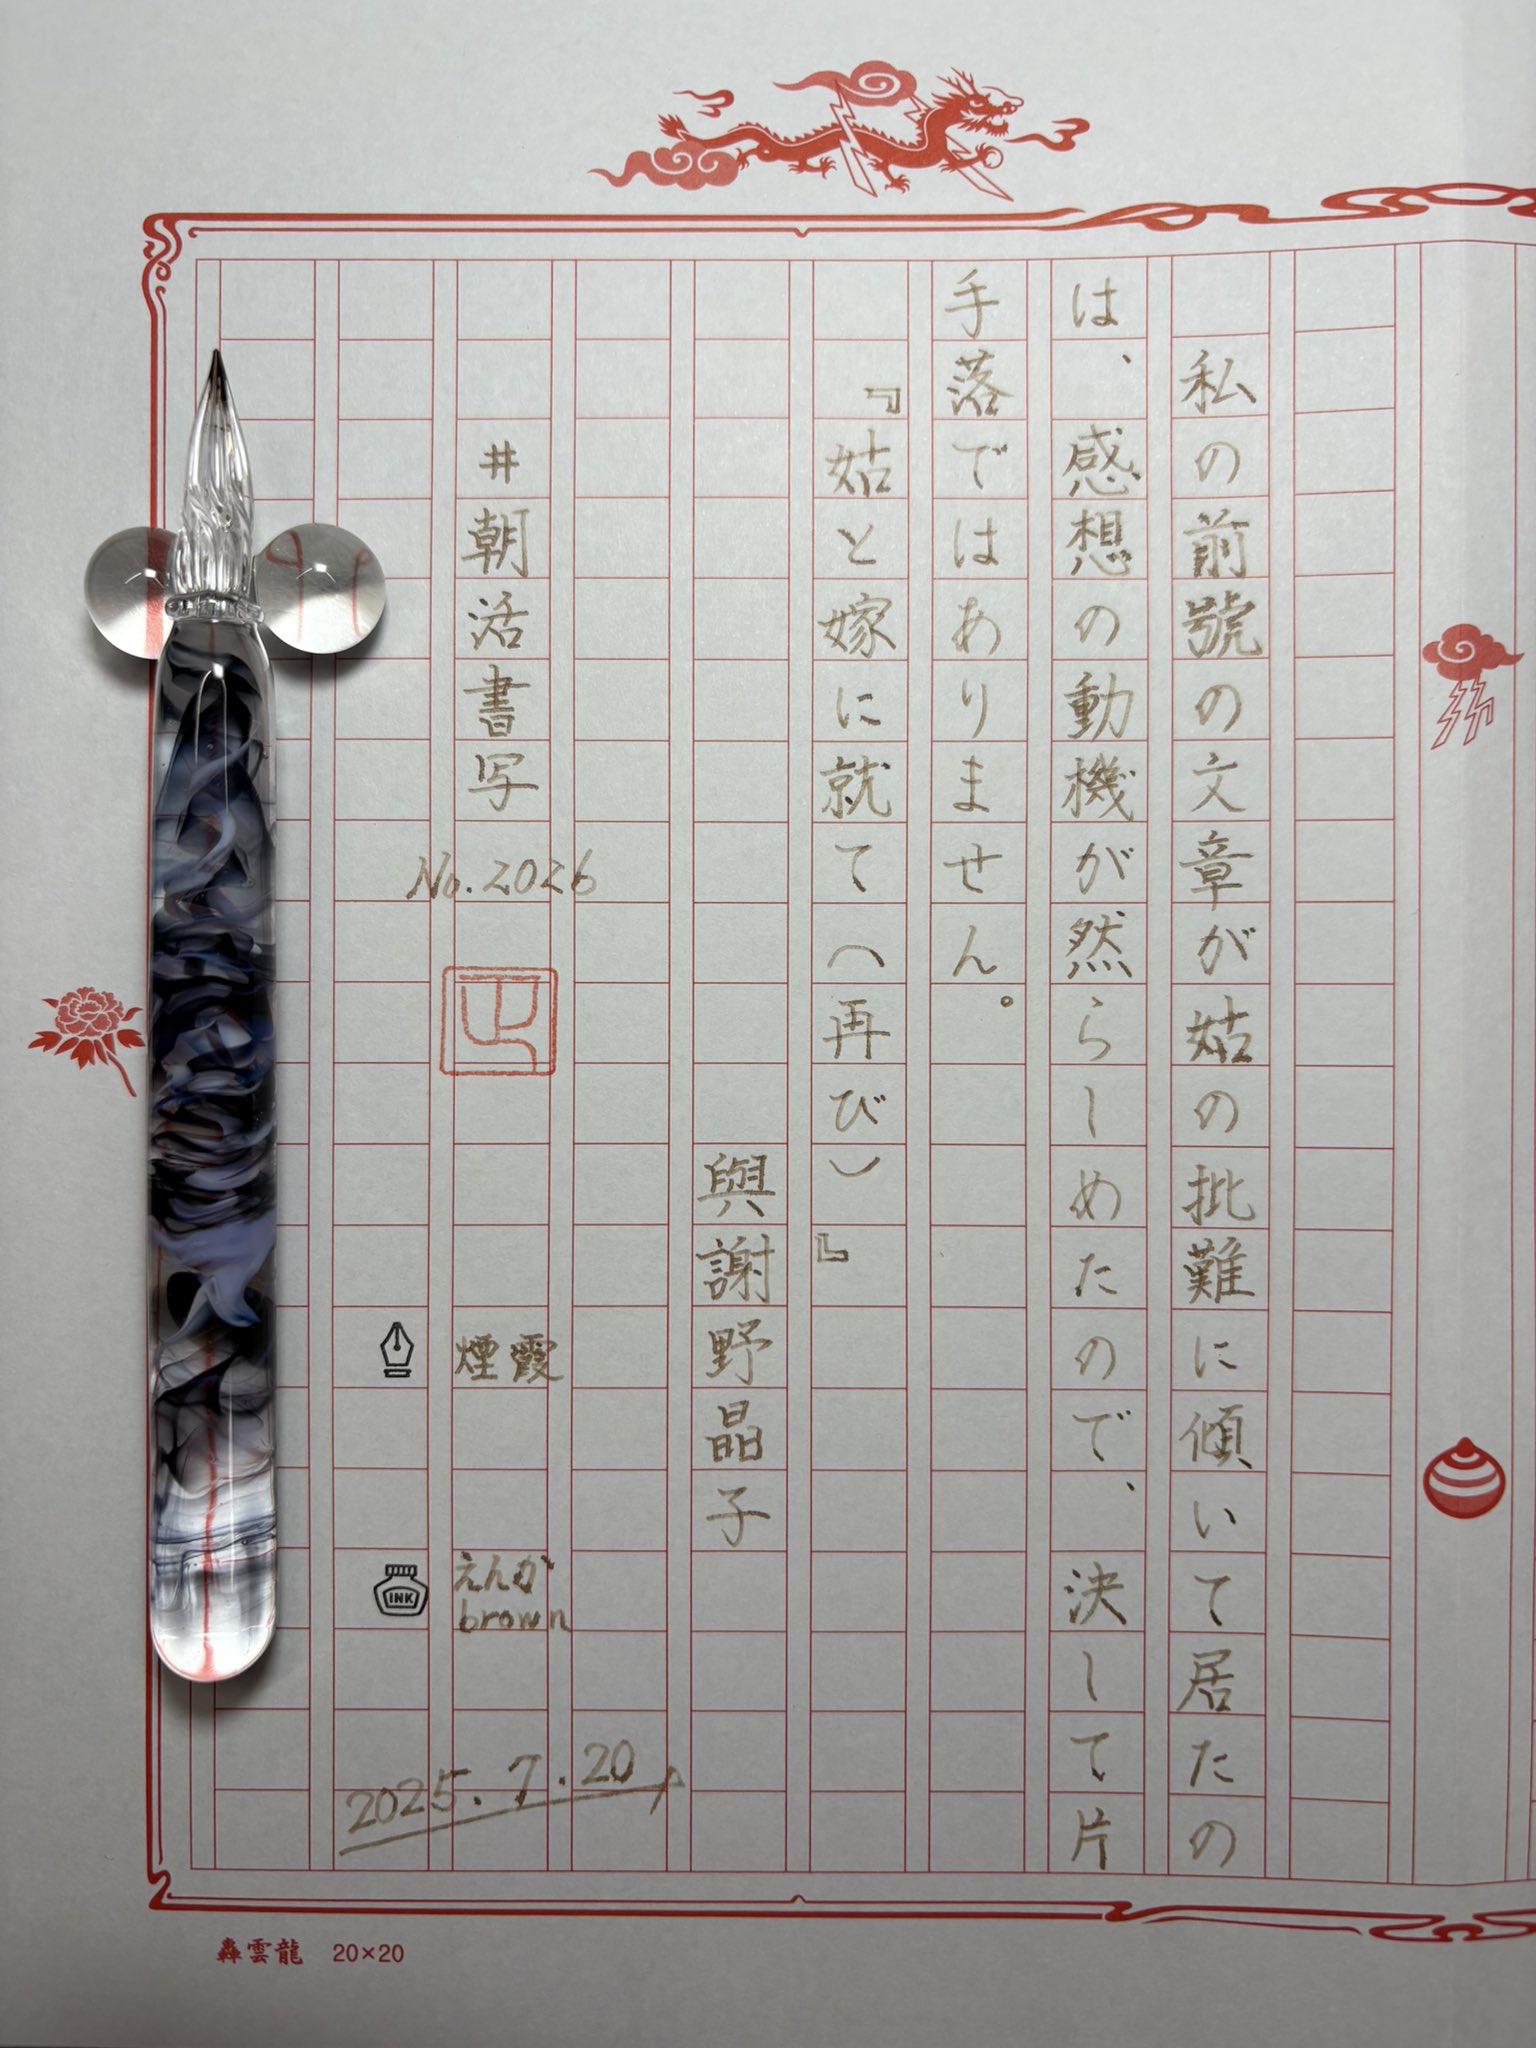 私の前號の文章が姑の批難に傾いて居たの
は、感想の動機が然らしめたので、決して片
手落ではありません。
『姑と嫁に就て(再び)』
與謝野晶子
#朝活書写
No.2026
煙霞
えんか
brown
INK
2025.7.20
轟雲龍 20×20